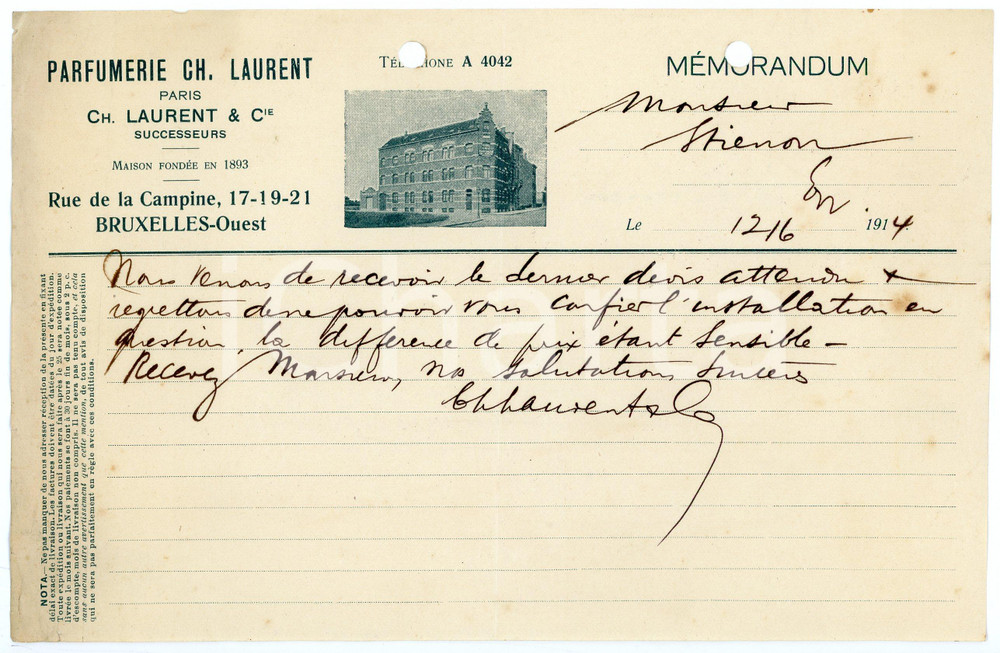 PARFUMERIE CH. LAURENT
PARIS
CH. LAURENT & CIE
SUCCESSEURS
MAISON FONDÉE EN 1893
Rue de la Campine, 17-19-21
BRUXELLES-Ouest
TÉL HONE A 4042
MÉMORANDUM
Monsieur
Stiénon
E/V.
Le 12/6 1914
Nous venons de recevoir le dernier devis attendu &
regrettons de ne pouvoir vous confier l'installation en
question, la différence de prix étant sensible —
Recevez, Monsieur, nos salutations sincères
Ch Laurent & Co
NOTA. — Ne pas manquer de nous adresser réception de la présente en fixant
délai exact de livraison. Les factures doivent être datées du jour d'expédition.
Toute expédition ou livraison qui nous sera faite après le 25 sera notée comme
livrée le mois suivant. Nos paiements se font à 30 jours fin de mois, sous 2 p. c.
d'escompte, mois de livraison non compris. Il ne sera pas tenu compte, et cela
sans aucun autre avertissement que cette mention, de tout avis de disposition
qui ne sera pas parfaitement en règle avec ces conditions.